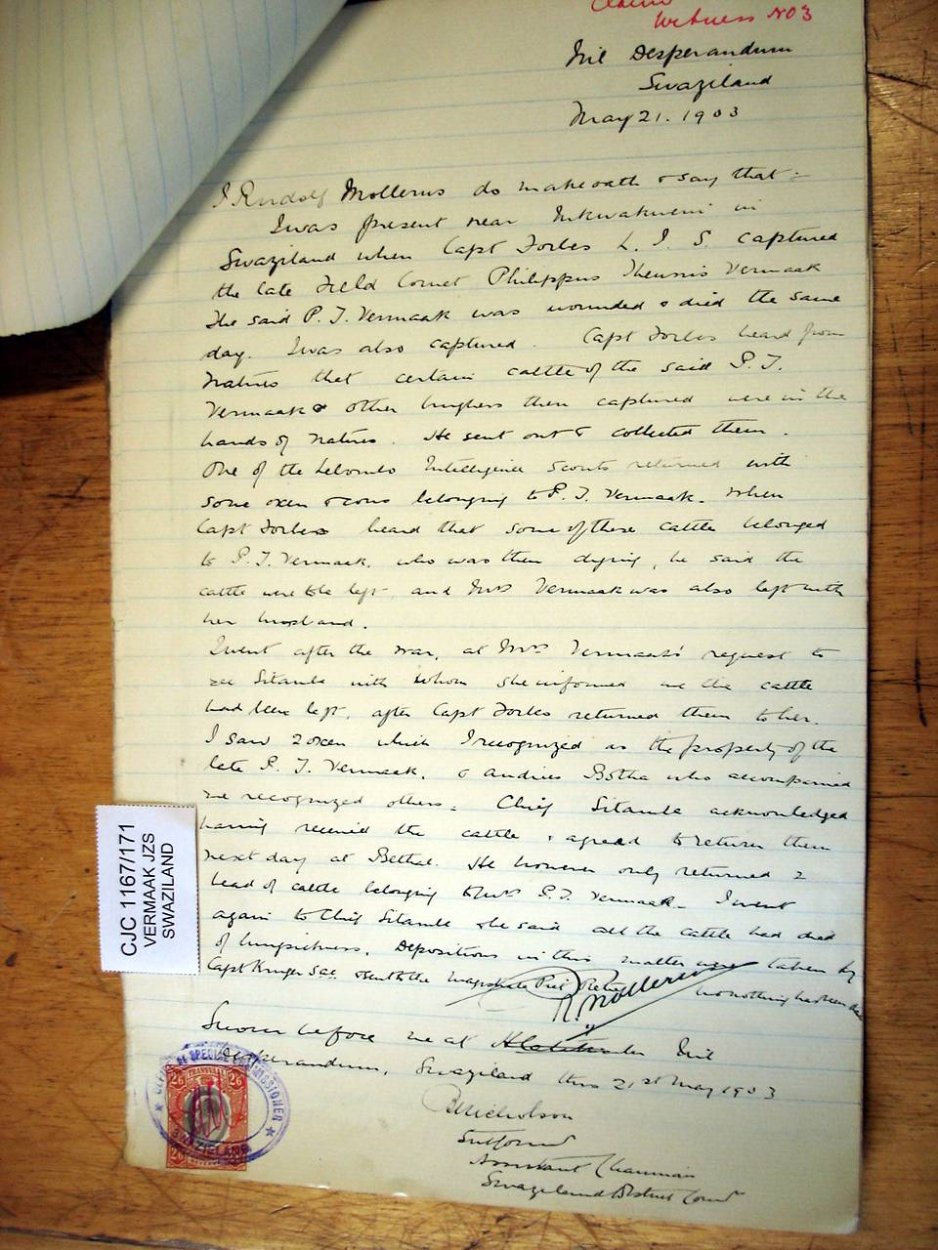 Claim
Witness No 3
Nil Desperandum
Swaziland
May 21. 1903
I Rudolf Mollerus do make oath & say that :-
I was present near in
Swaziland when Capt Forbes L. I. S. captured
the late Field Cornet Philippus Theunis Vermaak
The said P. T. Vermaak was wounded & died the same
day. I was also captured. Capt Forbes heard from
Natives that certain cattle of the said P. T.
Vermaak & other burghers then captured were in the
hands of Natives. He sent out & collected them.
One of the Lebombo Intelligence Scouts returned with
some oxen & cows belonging to P. T. Vermaak. When
Capt Forbes heard that some of these cattle belonged
to P. T. Vermaak, who was then dying, he said the
cattle were to be left, and Mrs Vermaak was also left with
her husband.
I went after the war, at Mrs Vermaak's request to
see Sitambe with whom she informed me the cattle
had been left, after Capt Forbes returned them to her.
I saw 2 oxen which I recognized as the property of the
late P. T. Vermaak, & Andries Botha who accompanied
me recognized others. Chief Sitambe acknowledged
having received the cattle & agreed to return them
next day at Bethal. He however only returned 2
head of cattle belonging to Mrs P. T. Vermaak. I went
again to Chief Sitambe & he said all the cattle had died
of lungsickness. Depositions in this matter were taken by
Capt Kruger SAC & sent to the Magistrate Piet Retief but nothing has been
R. Mollerus
Sworn before me at Nil
Desperandum, Swaziland this 21st May 1903
B Nicholson
Assistant Chairman
Swaziland District Court
CJC 1167/171
VERMAAK JZS
SWAZILAND
OFFICE OF SPECIAL COMMISSIONER
SWAZIELAND
TRANSVAAL
2/6 2/6
2/6